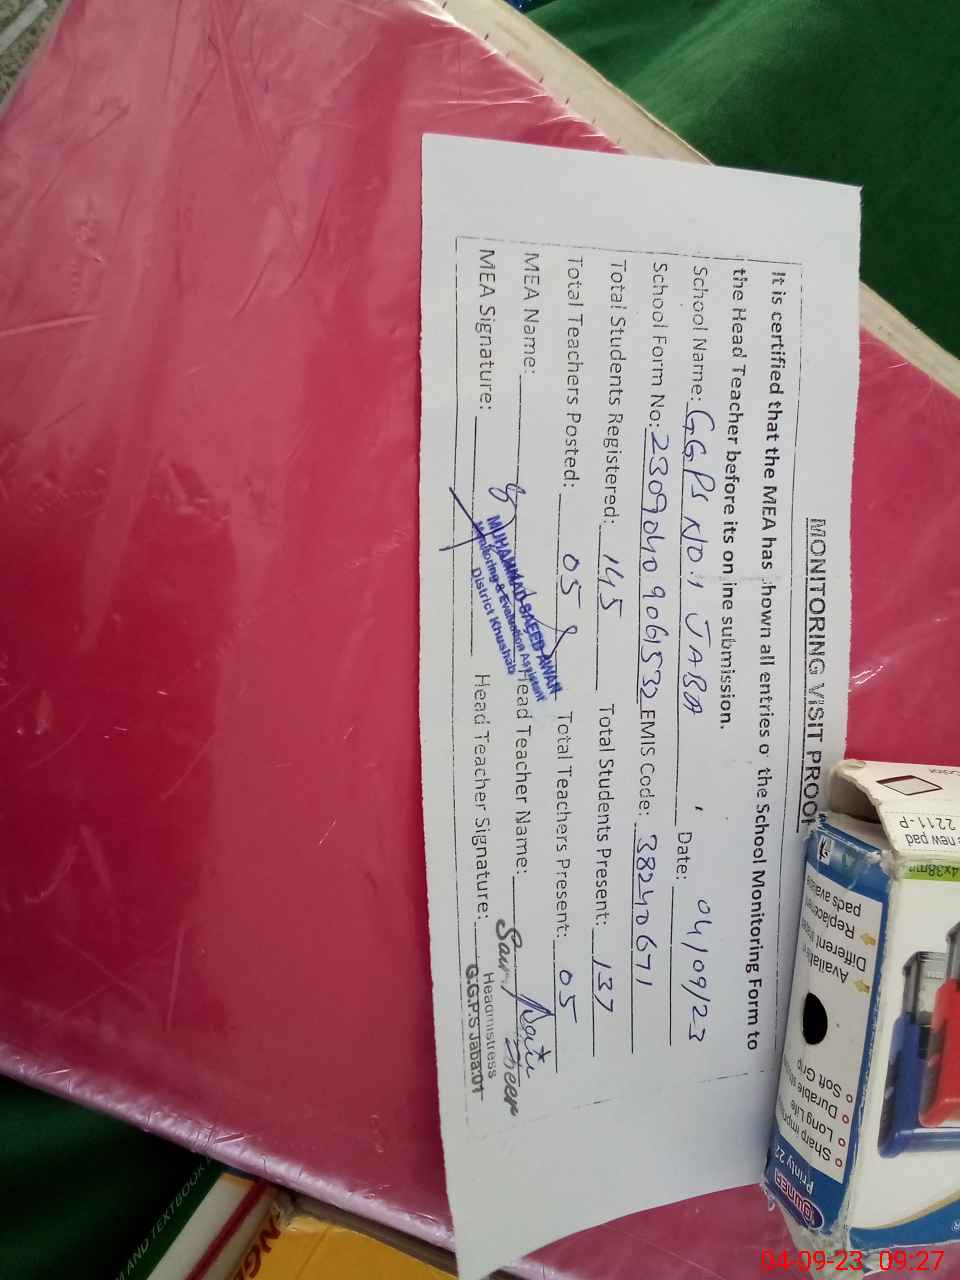 MONITORING VISIT PROOF
It is certified that the MEA has shown all entries of the School Monitoring Form to
the Head Teacher before its on ine submission.
School Name: GGPS NO.1 JABA Date: 04/09/23
School Form No: 2309040 9061532 EMIS Code: 38240671
Total Students Registered: 145 Total Students Present: 137
Total Teachers Posted: 05 Total Teachers Present: 05
MEA Name: Head Teacher Name:
MEA Signature: Head Teacher Signature:
MUHAMMAD SAEED AWAN
Monitoring & Evaluation Assistant
District Khushab
Headmistress
G.G.P.S Jaba:01
new pad
2211-P
4x38m
Different
Replacemen
pads availa
Sharp impr
Long Life
Durable
Soft Grip
Printy 22
OWNER
M AND TEXTBOOK
04-09-23 09:27